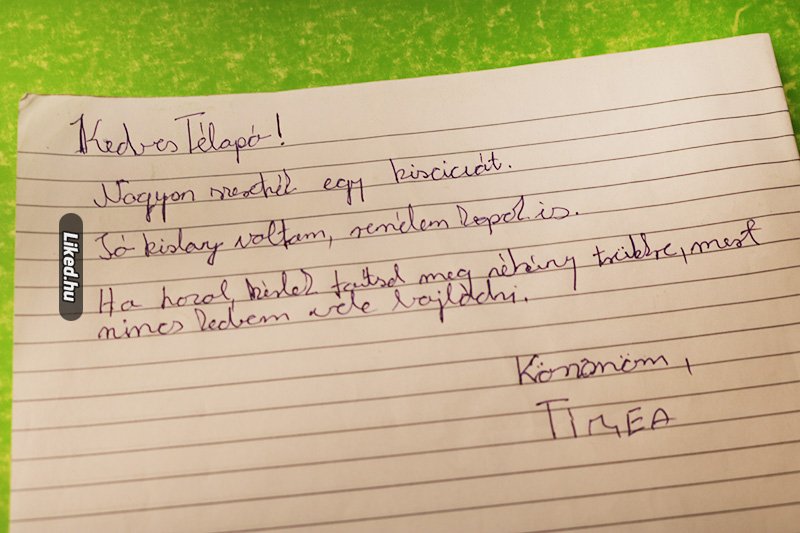 Kedves Télapó!
Nagyon szeretnék egy kiscicát.
Jó kislány voltam, remélem kapok is.
Ha hozol, kérlek taítsd meg néhány trükkre, mert
nincs kedvem vele bajlódni.
Köszönöm,
TÍMEA
Liked.hu